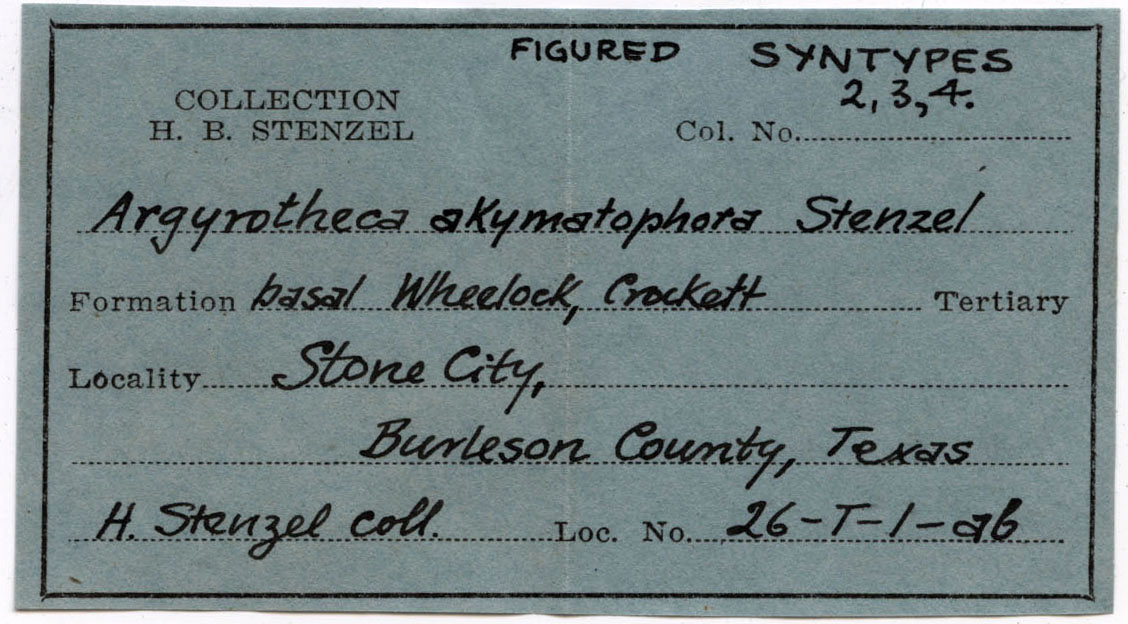 FIGURED SYNTYPES
2, 3, 4.
COLLECTION
H. B. STENZEL
Col. No.
Argyrotheca akymatophora Stenzel
Formation basal Wheelock, Crockett Tertiary
Locality Stone City,
Burleson County, Texas
H. Stenzel coll. Loc. No. 26-T-1-ab